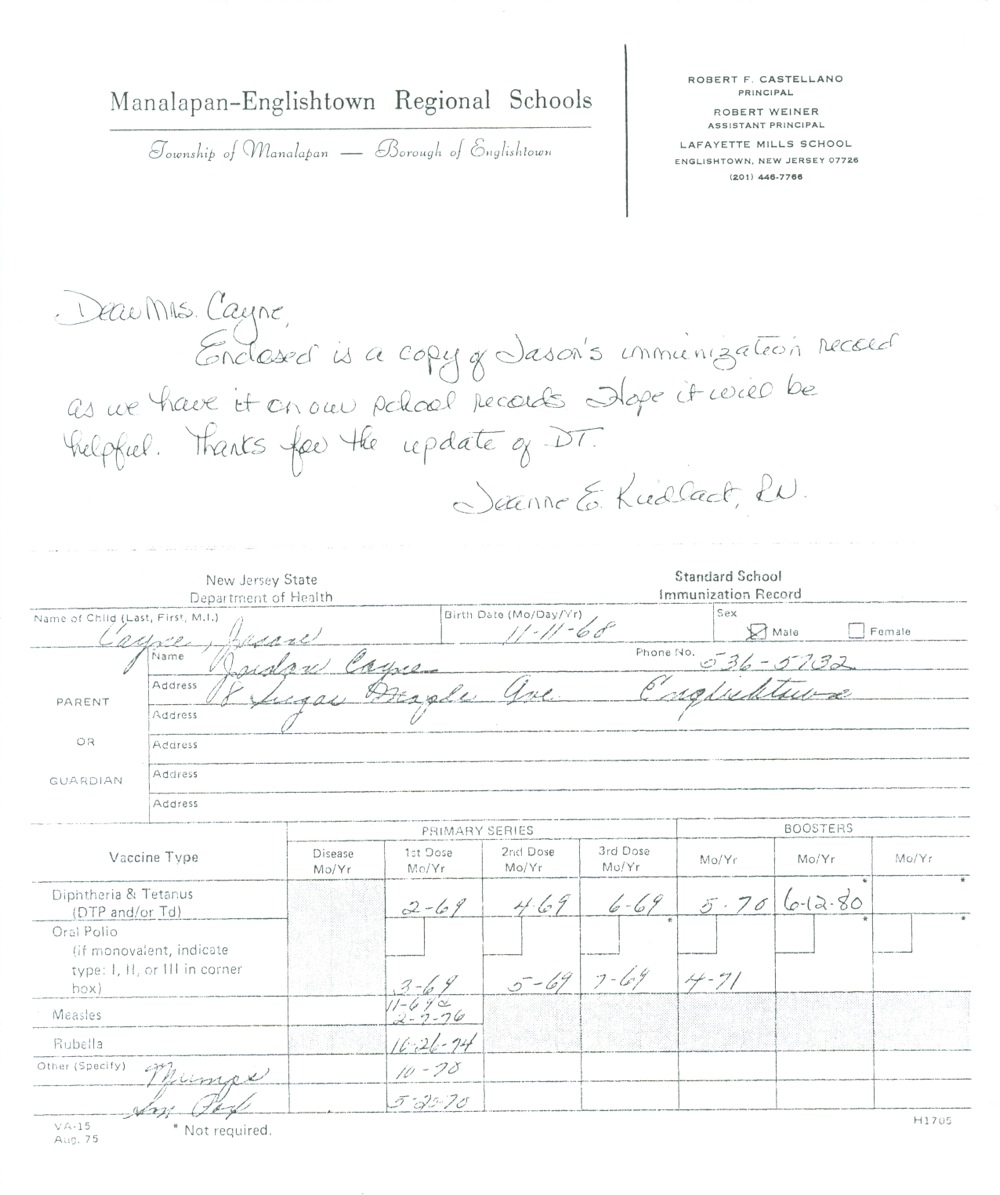 Manalapan-Englishtown Regional Schools
Township of Manalapan — Borough of Englishtown
ROBERT F. CASTELLANO
PRINCIPAL
ROBERT WEINER
ASSISTANT PRINCIPAL
LAFAYETTE MILLS SCHOOL
ENGLISHTOWN, NEW JERSEY 07726
(201) 446-7766
Dear Mrs. Cayne,
Enclosed is a copy of Jason's immunization record
as we have it on our school records Hope it will be
helpful. Thanks for the update of DT.
Jeanne E. RN.
New Jersey State
Department of Health
Standard School
Immunization Record
Name of Child (Last, First, M.I.) Birth Date (Mo/Day/Yr) Sex
Cayne, Jason 11-11-68 Male Female
PARENT
OR
GUARDIAN
Name Cayne Phone No. 536-5732
Address 8 Sugar Maple Ave. Englishtown
Address
Address
Address
Address
PRIMARY SERIES BOOSTERS
Vaccine Type Disease Mo/Yr 1st Dose Mo/Yr 2nd Dose Mo/Yr 3rd Dose Mo/Yr Mo/Yr Mo/Yr Mo/Yr
* *
Diphtheria & Tetanus
(DTP and/or Td) 2-69 4-69 6-69 5-70 6-12-80
* * *
Oral Polio
(if monovalent, indicate
type: I, II, or III in corner
box) 3-69 5-69 7-69 4-71
11-69
Measles 2-7-76
Rubella 10-26-74
Other (Specify) Mumps 10-70
Sm Pox 5-20-70
VA-15
Aug. 75
* Not required.
H1705